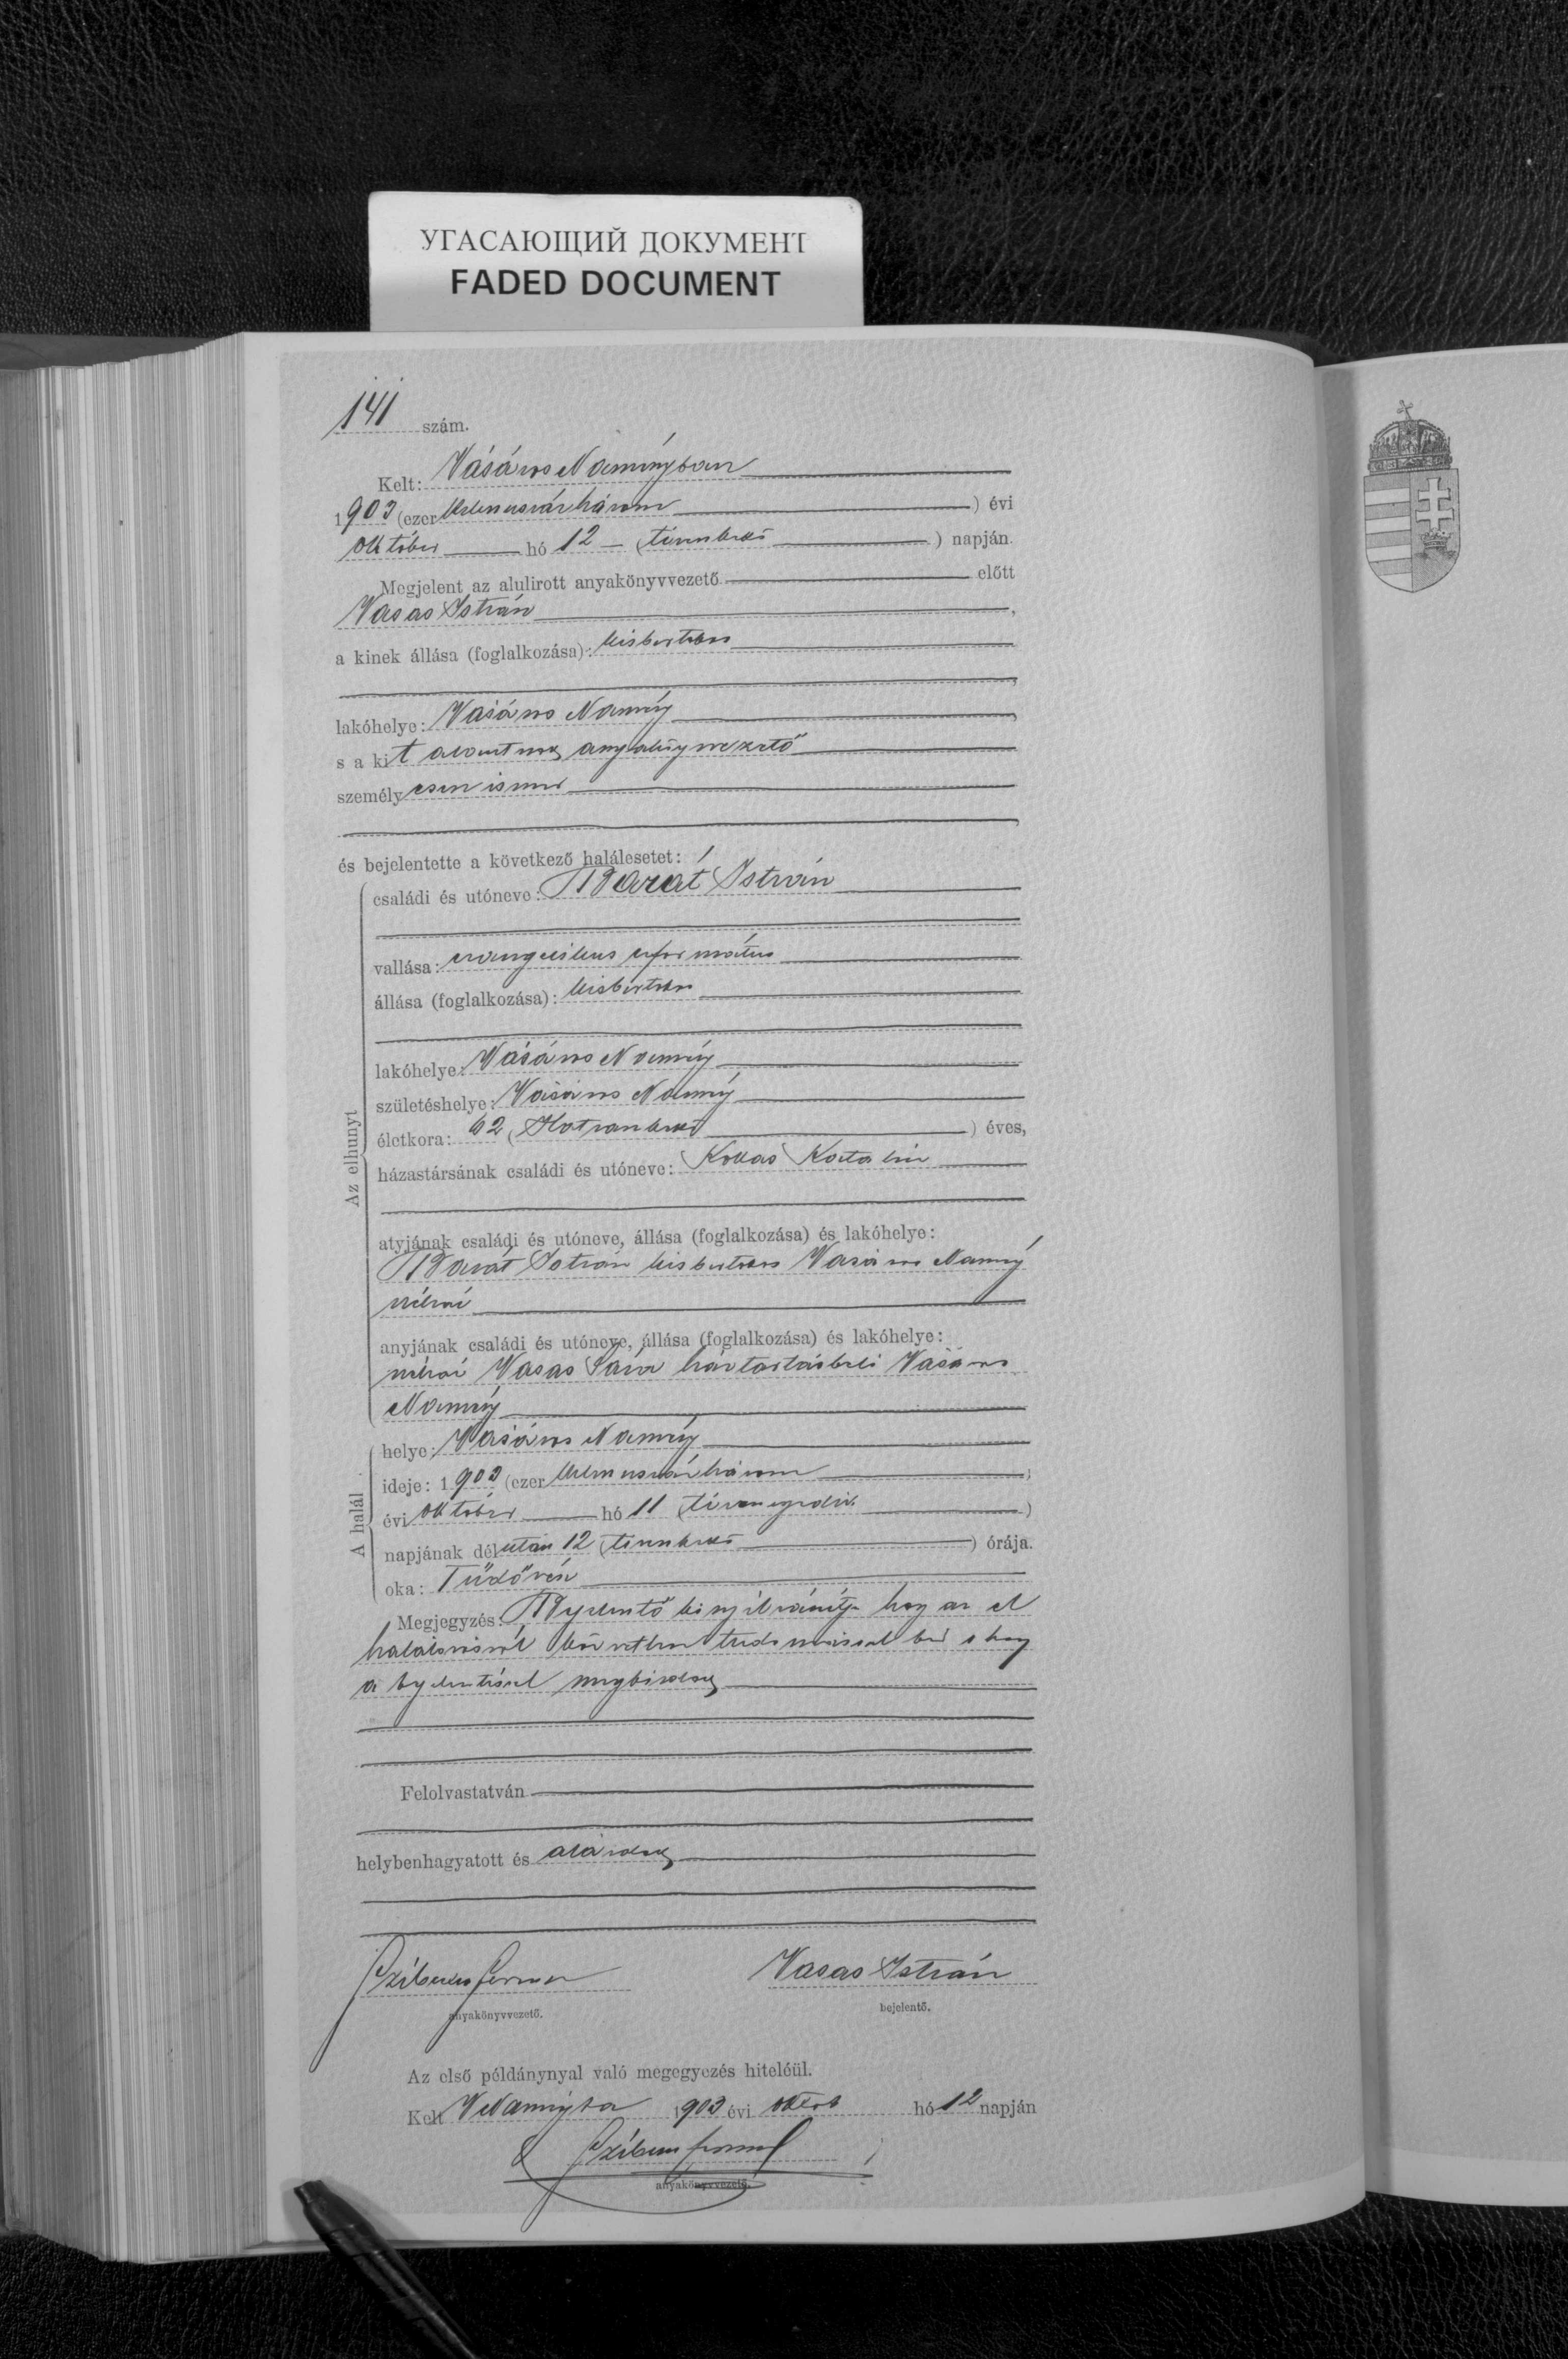 УГАСАЮЩИЙ ДОКУМЕНТ
FADED DOCUMENT
141 szám.
Kelt: Vásáros Naményban
1903 (ezer kilenczszázhárom) évi
október hó 12 (tizenkettő) napján.
Megjelent az alulirott anyakönyvvezető előtt
Vasas István,
a kinek állása (foglalkozása): kisbirtokos
lakóhelye: Vásáros Namény
s a kit alulírott anyakönyvvezető
személyesen ismer
és bejelentette a következő halálesetet:
Az elhunyt
családi és utóneve: Barát István
vallása: evangelikus református
állása (foglalkozása): kisbirtokos
lakóhelye: Vásáros Namény
születéshelye: Vásáros Namény
életkora: 62 (Hatvankettő) éves,
házastársának családi és utóneve: Katalin
atyjának családi és utóneve, állása (foglalkozása) és lakóhelye:
Barát István kisbirtokos Vásáros Namény
néhai
anyjának családi és utóneve, állása (foglalkozása) és lakóhelye:
néhai Vasas Sára háztartásbeli Vásáros
Namény
A halál
helye: Vásáros Namény
ideje: 1903 (ezer kilenczszázhárom)
évi október hó 11 (tizenegyedik)
napjának délután 12 (tizenkettő) órája.
oka: Tüdővész
Megjegyzés: Bejelentő kinyilvánítja hogy az el
halálozásról közvetlen tudomással bir s hogy
a bejelentéssel megbizatott
Felolvastatván
helybenhagyatott és aláíratott
anyakönyvvezető.
Vasas István
bejelentő.
Az első példánynyal való megegyezés hiteléül.
Kelt VNaményba 1903 évi októb hó 12 napján
anyakönyvvezető.